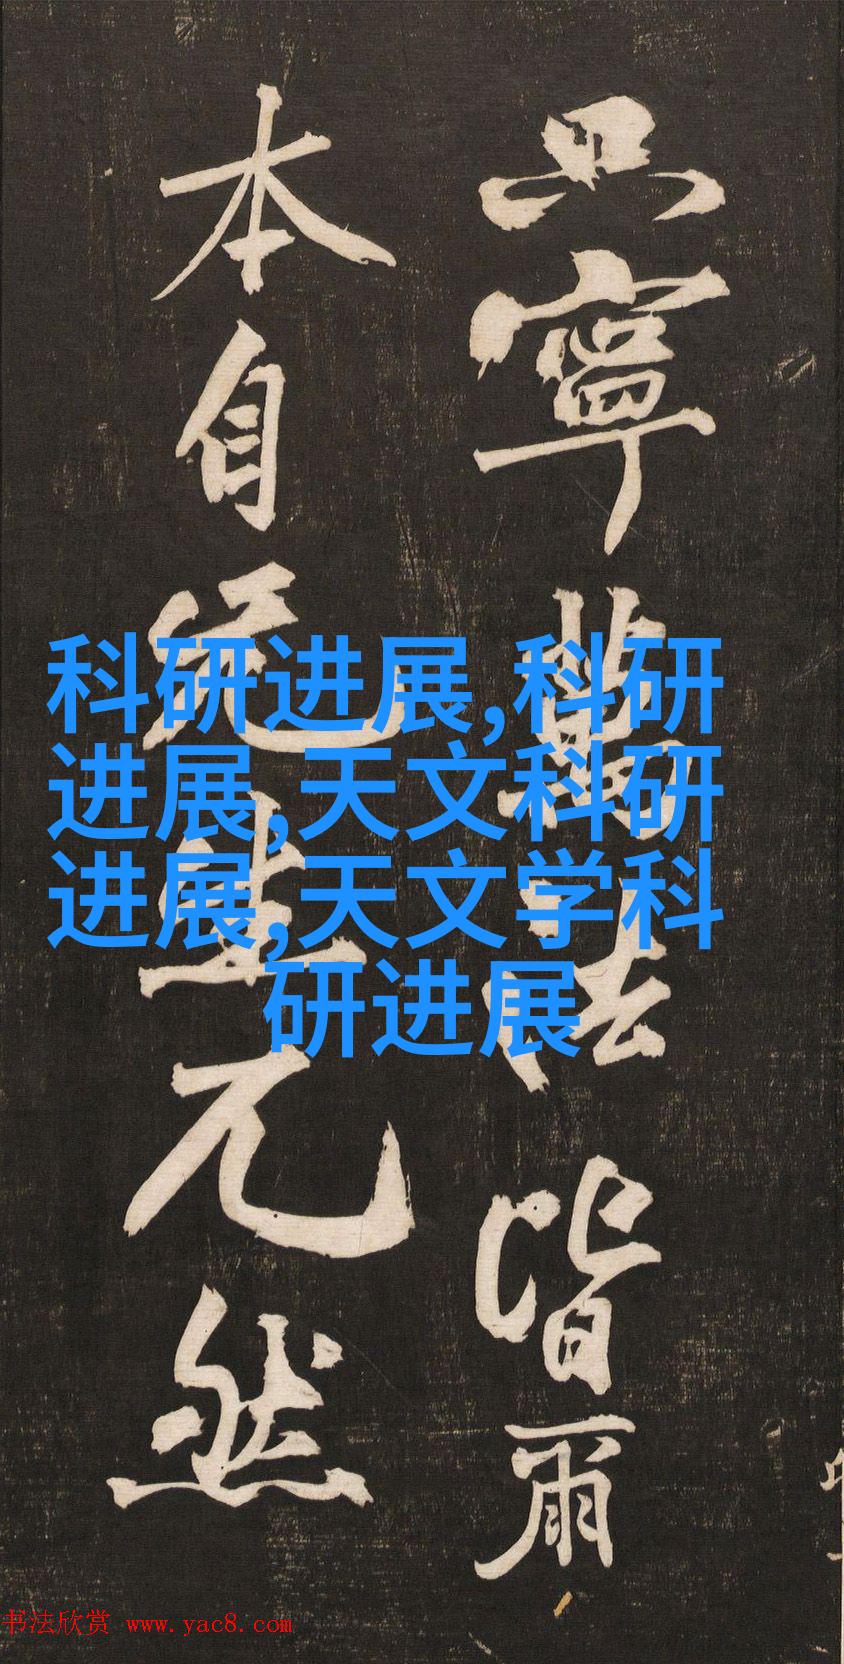 只寧萬法皆爾
本自兀然
科研进展,科研
进展,天文科研
进展,天文学科
研进展
书法欣赏 www.yac8.com